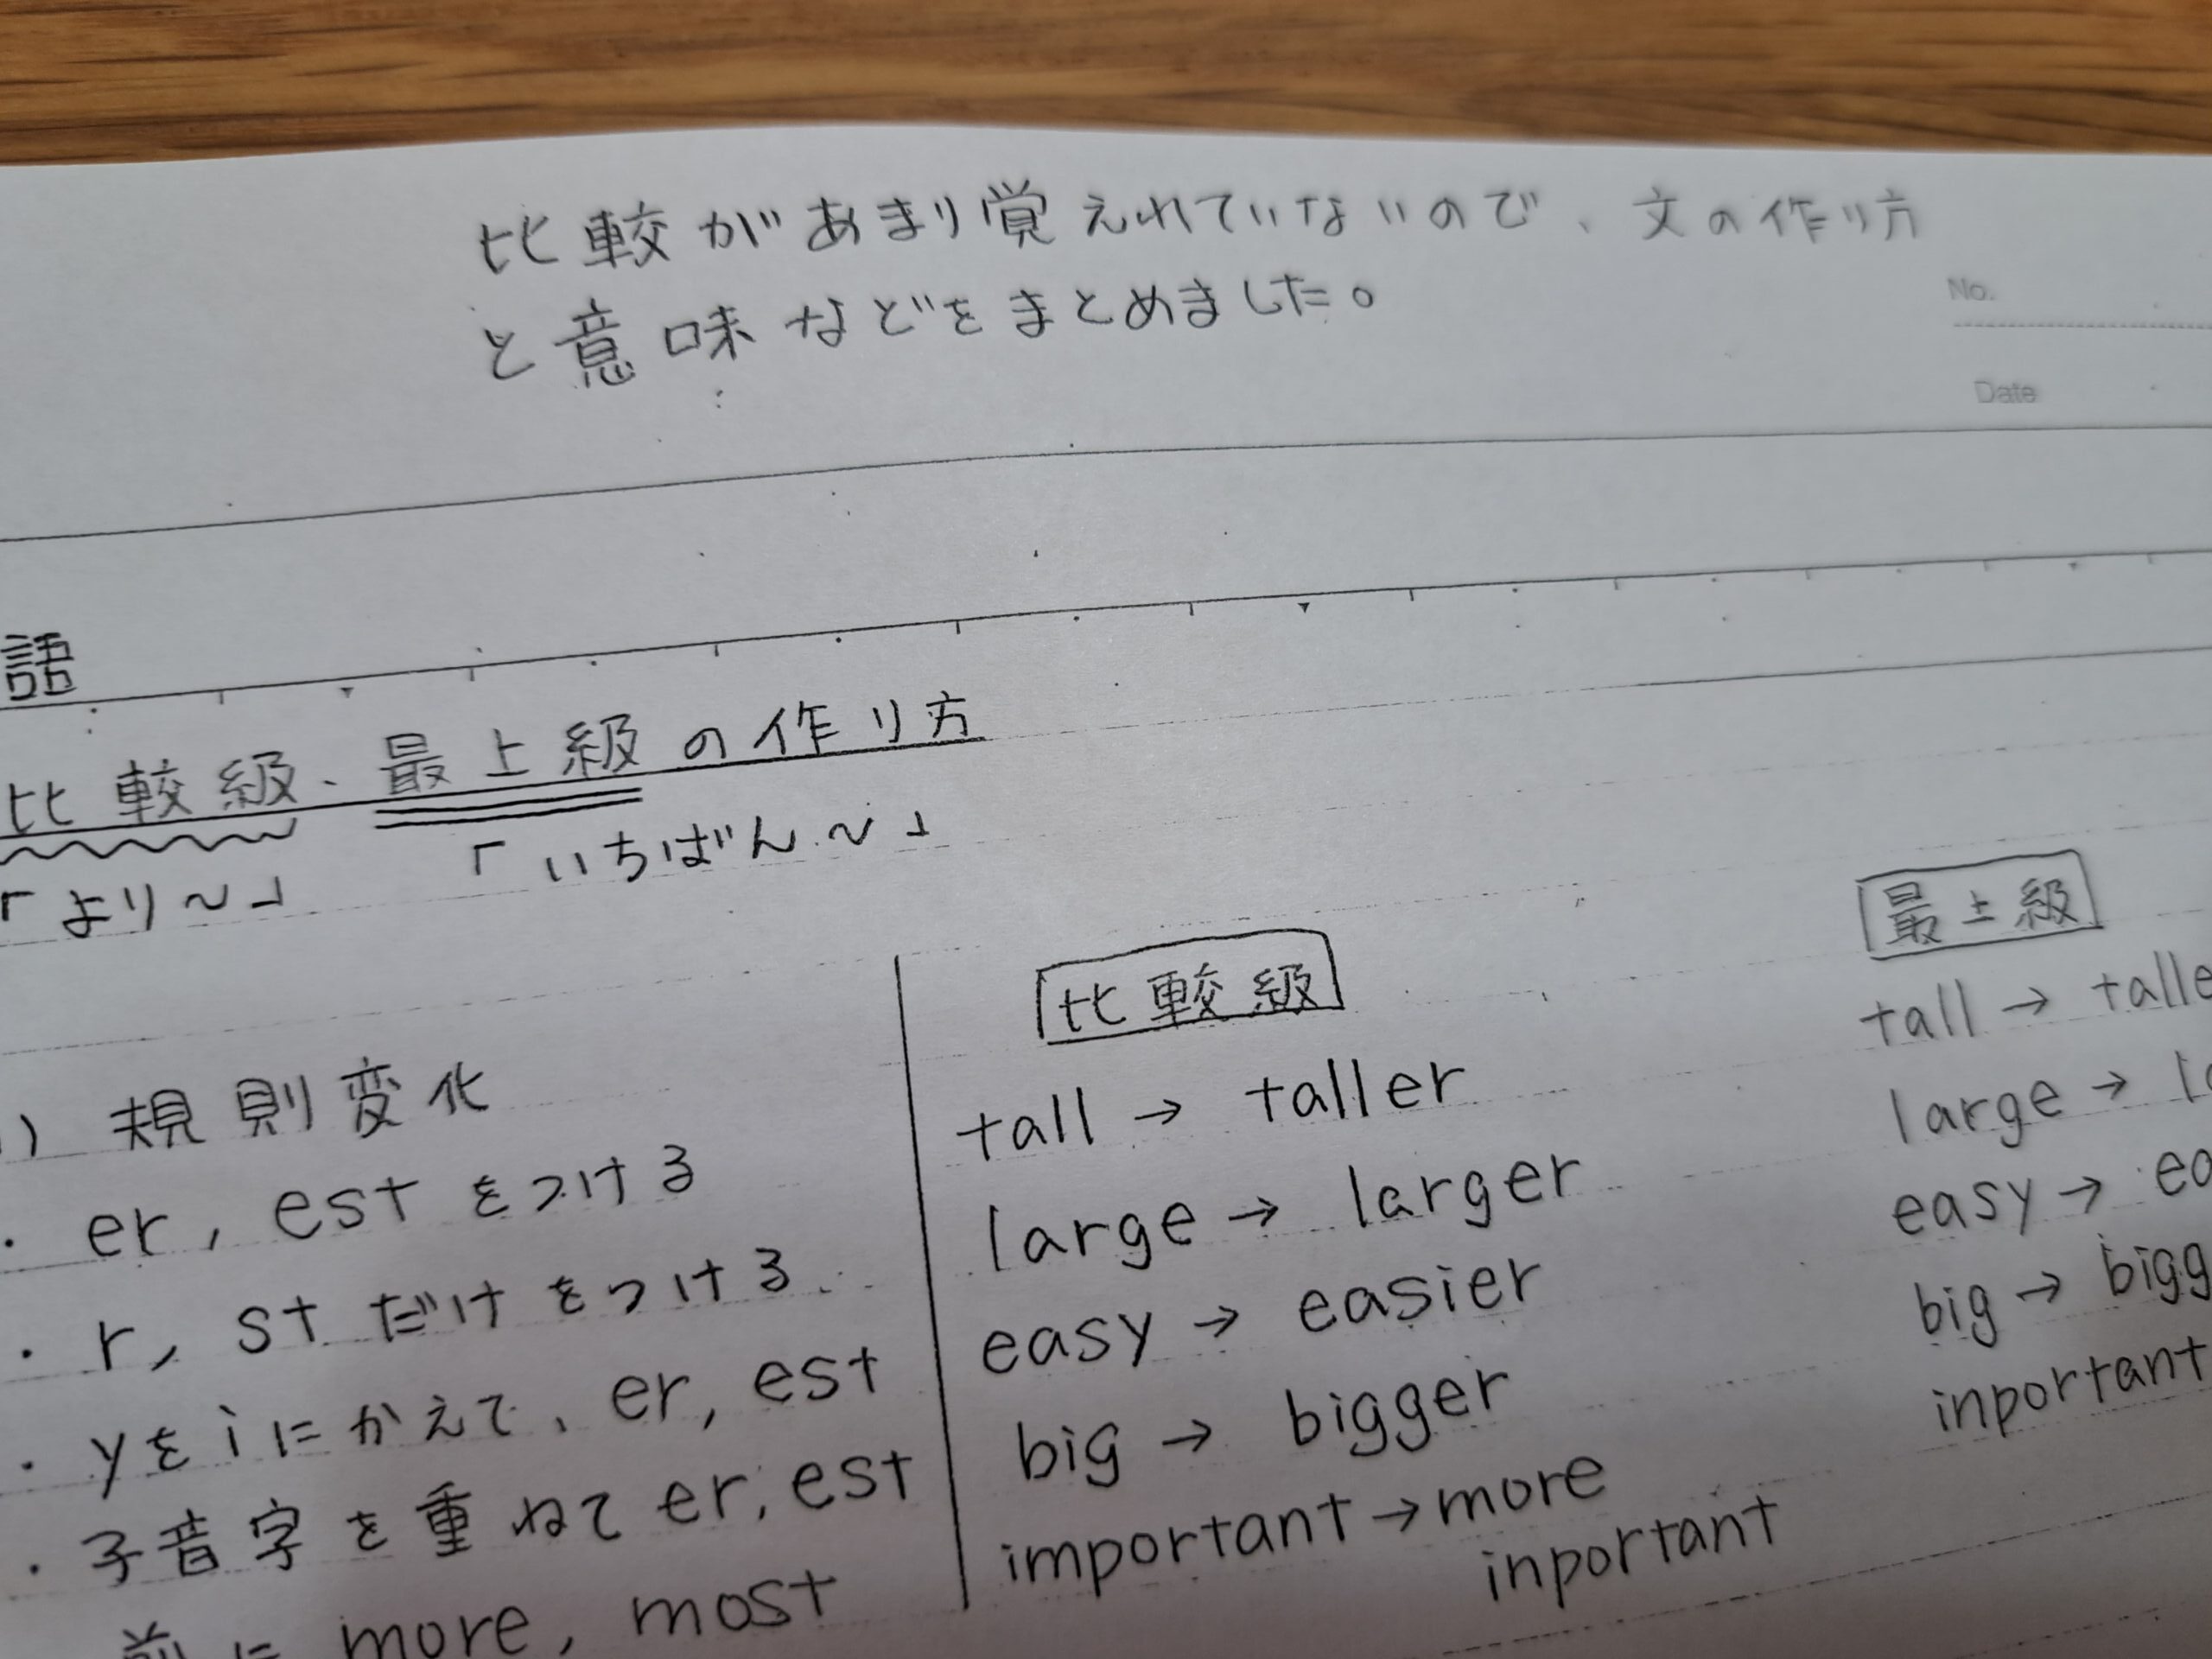 比較があまり覚えれていないので、文の作り方
と意味などをまとめました。
No.
Date
語
比較級、最上級の作り方
「より〜」 「いちばん〜」
比較級
最上級
1) 規則変化
・er, estをつける
・r, stだけをつける
・yをiにかえて、er, est
・子音字を重ねてer, est
前に more, most
tall → taller
large → larger
easy → easier
big → bigger
important → more
inportant
tall → talle
large → la
easy → ea
big → bigg
inportant